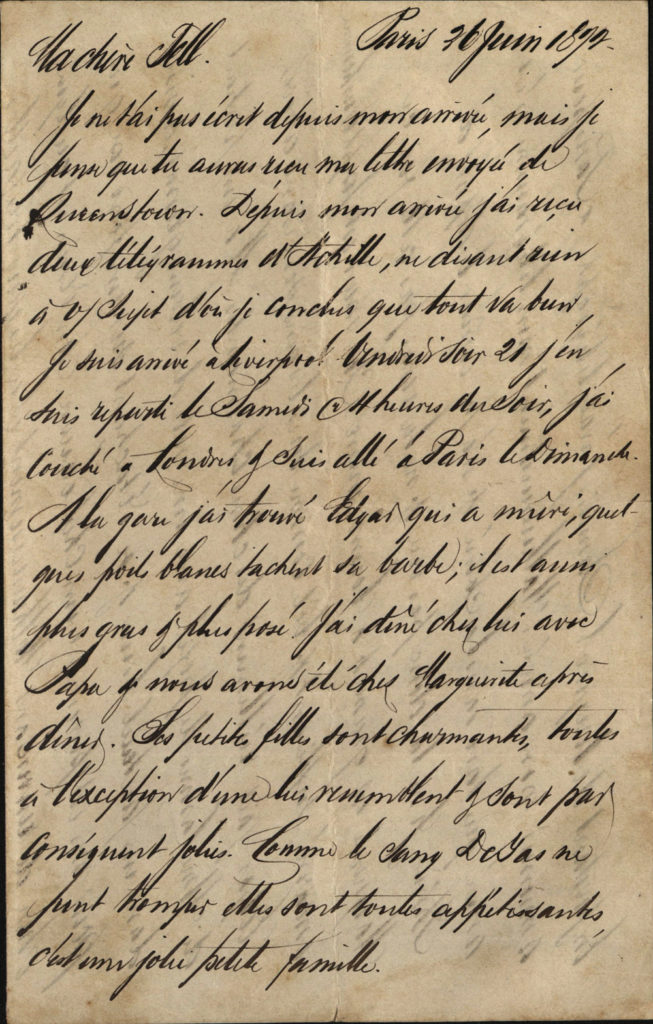 Paris 26 Juin 1872.
Ma chère Tell.
Je ne t'ai pas écrit depuis mon arrivée, mais je
pense que tu auras reçu ma lettre envoyée de
Queenstown. Dépuis mon arrivée j'ai reçu
deux télégrammes d'Achille, ne disant rien
à v/ sujet d'où je conclus que tout va bien
Je suis arrivé à Liverpool Vendredi soir 21 j'en
suis reparti le Samedi @ 4 heures du Soir, j'ai
couché a Londres & suis allé à Paris le Dimanche.
A la gare j'ai trouvé Edgar qui a mûri, quel-
ques poils blancs tachent sa barbe; il est aussi
plus gras & plus posé. J'ai dîné chez lui avec
Papa & nous avons été chez Marguerite après
dîner. Ses petites filles sont charmantes, toutes
à l'exception d'une lui ressemblent & sont par
conséquent jolies. Comme le sang DeGas ne
peut tromper elles sont toutes appétissantes,
c'est une jolie petite famille.